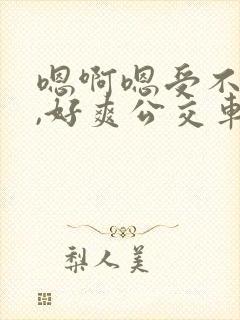 嗯啊嗯受不
,好爽公交车
梨人美